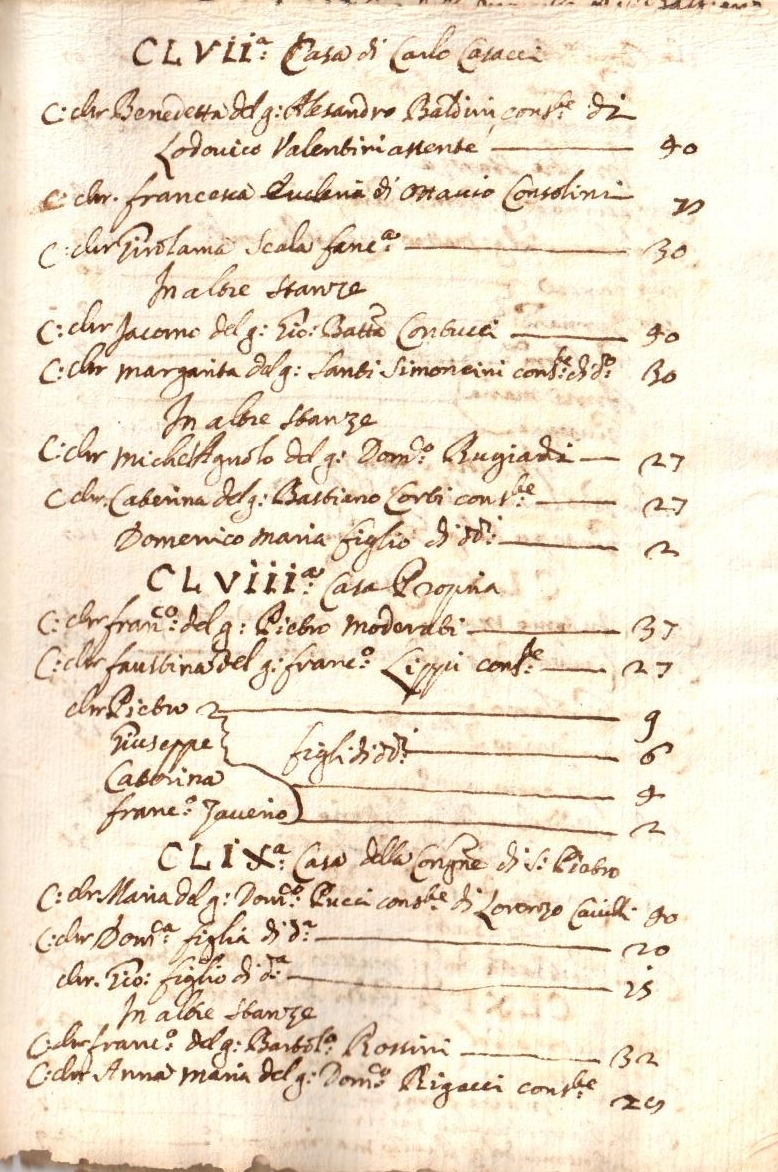 CLVII.ª Casa di Carlo Casacci
C: chr Benedetta del q: Alesandro Baldini cons.te di
Lodovico Valentini assente 40
C: chr. Francesca di Ottavio Consolini
C: chr Girolama Scala fanc.ª 30
In altre stanze
C: chr Jacomo del q: Gio: Batta Contucci 40
C: chr Margarita del q: Santi Simoncini cons.te di d.º 30
In altre stanze
C: chr Michel'Agnolo del q: Dom.co Rugiadi 27
C: chr. Caterina del q: Bastiano Corbi cons.te 27
Domenico Maria figlio di dd.i 2
CLVIII.ª Casa Propria
C: chr Fran.co del q: Pietro Moderati 37
C: chr Faustina del q: Franc.º Lippi cons.te 27
chr Pietro 9
Giuseppe figli di dd.i 6
Caterina 4
Franc.º Saverio 2
CLIX.ª Casa della Congne di S: Pietro
C: chr Maria del q: Dom.co Pucci cons.te di Lorenzo 40
C: chr Dom.ca figlia di d.ª 20
chr. Gio: figlio di d.ª 15
In altre stanze
C: chr Franc.º del q: Bartol.º Rossini 32
C: chr Anna Maria del q: Dom.co Rigacci cons.te